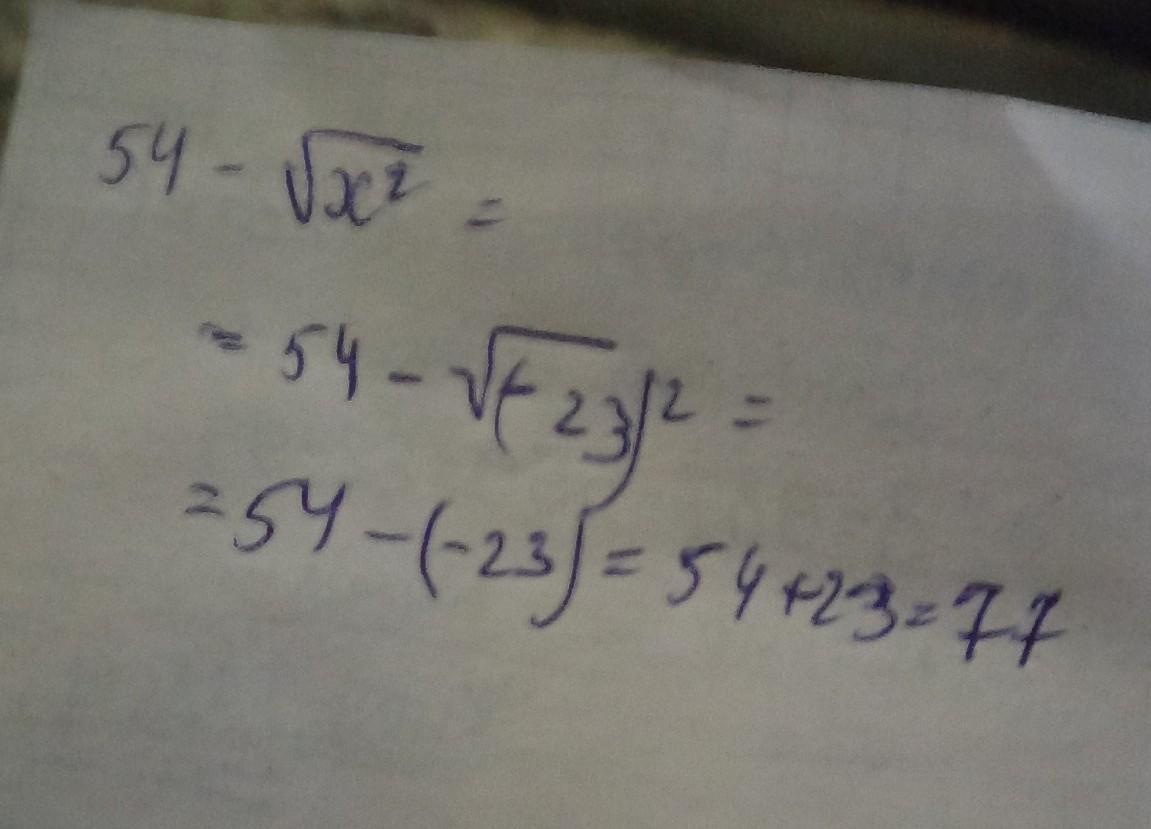 54 - √x² =
= 54 - √(-23)² =
= 54 - (-23) = 54 + 23 = 77